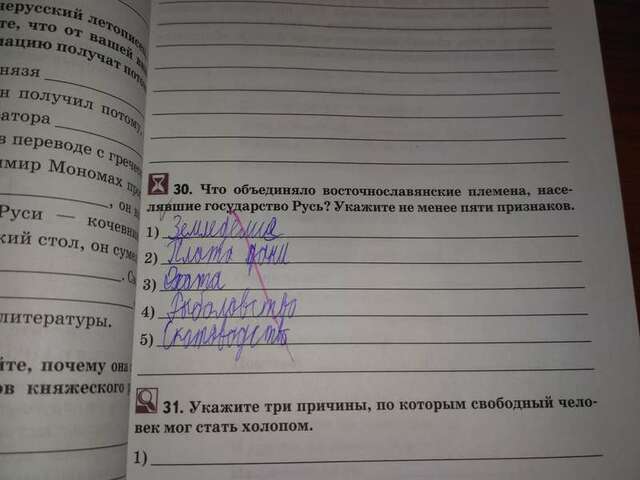 нерусский летописе
те, что от вашей
мацию получат
нязя
н получил потому,
ратора
в переводе с гречес
имир Мономах про
, он
Руси — кочевни
кий стол, он суме
литературы.
йте, почему она
ов княжеского
30. Что объединяло восточнославянские племена, насе-
лявшие государство Русь? Укажите не менее пяти признаков.
1) Земледелие
2) Плата дани
3) Охота
4) Рыболовство
5) Скотоводство
31. Укажите три причины, по которым свободный чело-
век мог стать холопом.
1)